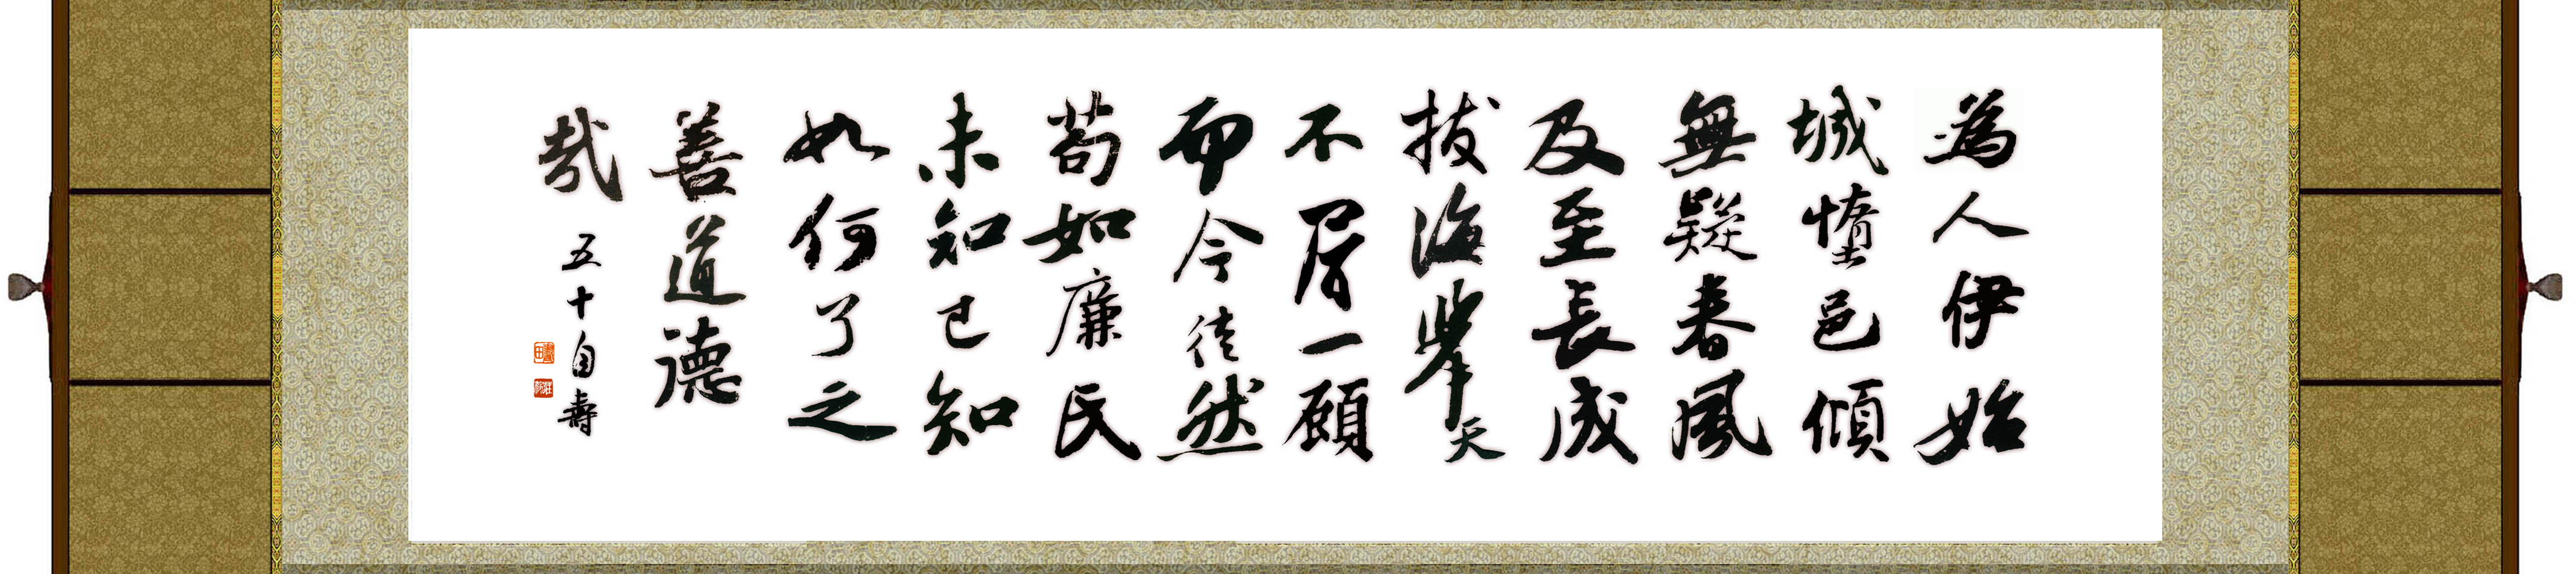 為人伊始
城墮邑傾
無疑春風
及至長成
拔海舉天
不屑一顧
而今徒然
苟如廉民
未知已知
如何了之
善道德
哉
五十自壽